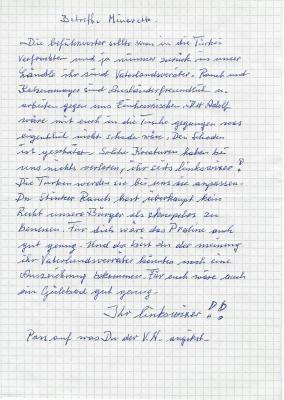 Betreffs Minarette.
Die befürworter sollte man in die Türkei
verfrachten und ja nimmer zurück in unser
Ländle ihr sind Vaterlandsveräter. Rauch und
sind Ausländerfreundlich u.
arbeiten gegen uns Einheimischen. Mit Adolf
wäre mit euch in die gegangen was
eigentlich nicht schade wäre. Den Schaden
ist gschpäter. Solche Kreaturen haben bei
uns nichts verloren, ihr seits linkswixer!
Die Türken werden sie bei uns nie anpassen.
Du Stinker Rauch hast überhaupt kein
Recht unsere Bürger als skrupelos zu
benennen. Für dich wäre das Praline auch
gut genug. Und da bist du der meinung
ihr Vaterlandsveräter könntet noch eine
Auszeichnung bekommen. Für euch wäre auch
ein Güllebad gut genug.
Ihr linkswixer!!
Pass auf was Du der V.N. angibst.